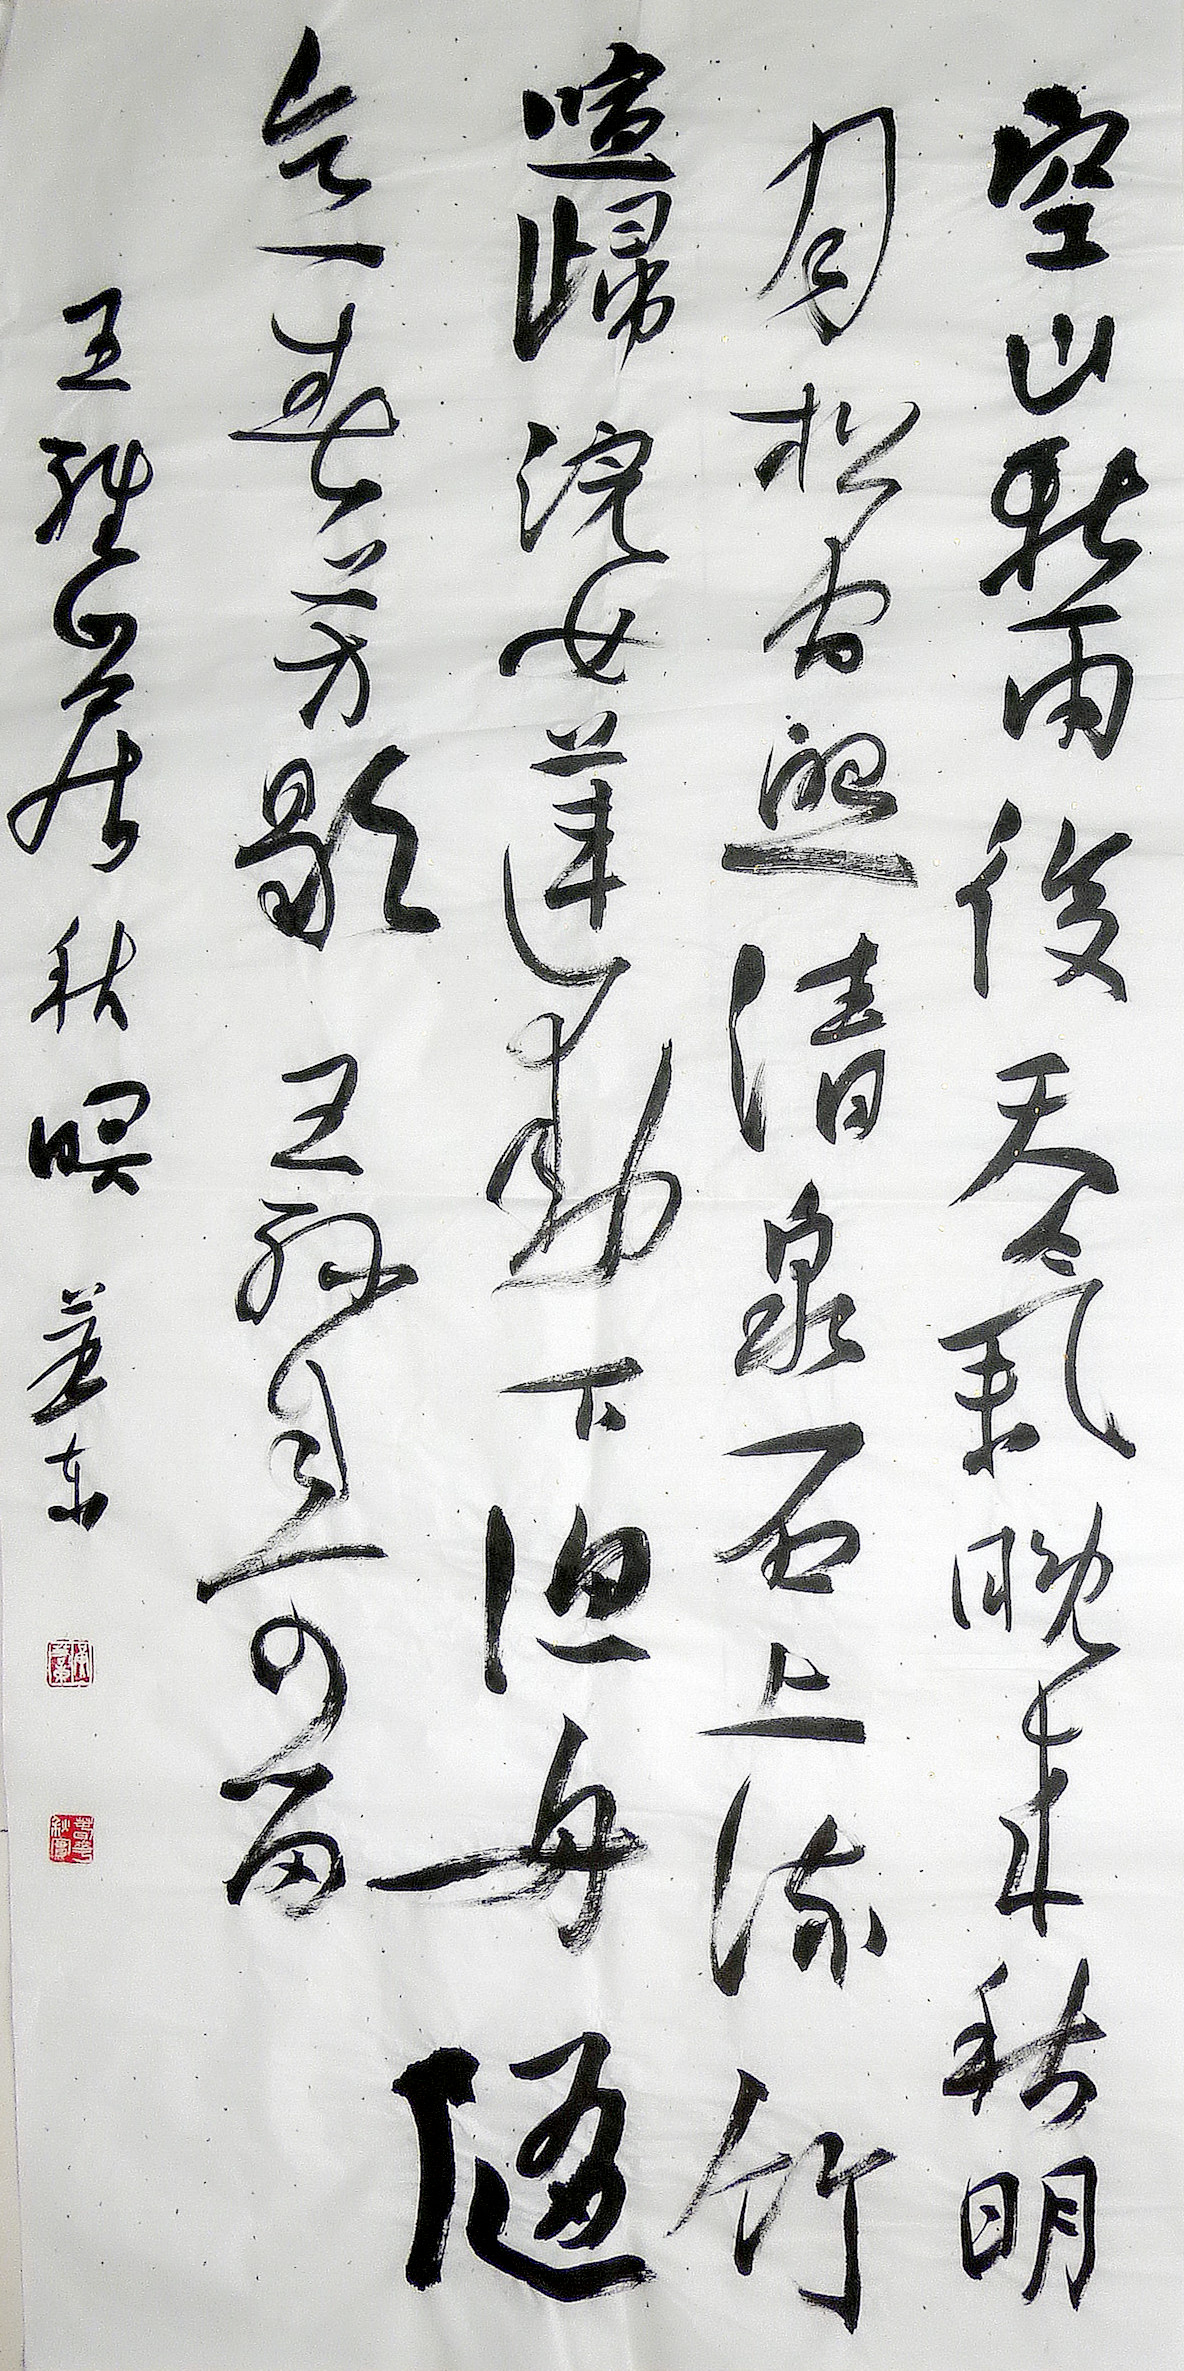 空山新雨後天氣晚來秋明
月松間照清泉石上流竹
喧歸浣女蓮動下漁舟隨
意春芳歇王孫自可留
王維山居秋暝
春華秋實